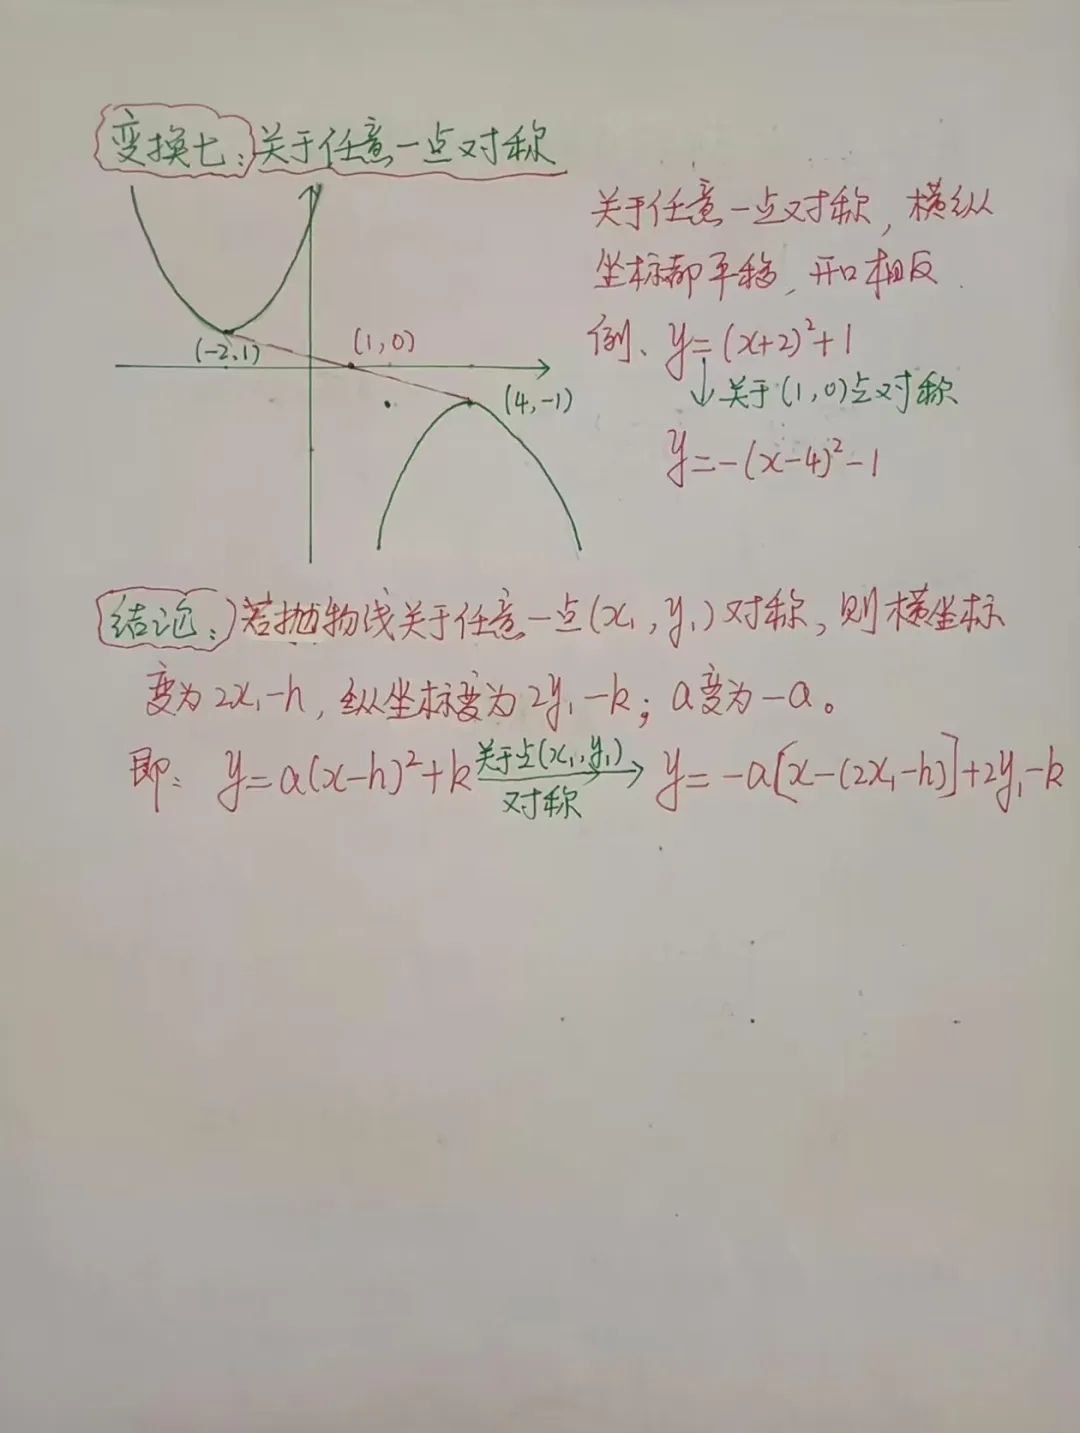 变换七:关于任意一点对称
关于任意一点对称,横纵
坐标都平移,开口相反.
例、y=(x+2)²+1
↓关于(1,0)点对称
y=-(x-4)²-1
(-2,1)
(1,0)
(4,-1)
结论:若抛物线关于任意一点(x₁,y₁)对称,则横坐标
变为2x₁-h,纵坐标变为2y₁-k;a变为-a。
即:y=a(x-h)²+k 关于点(x₁,y₁)对称→ y=-a[x-(2x₁-h)]+2y₁-k